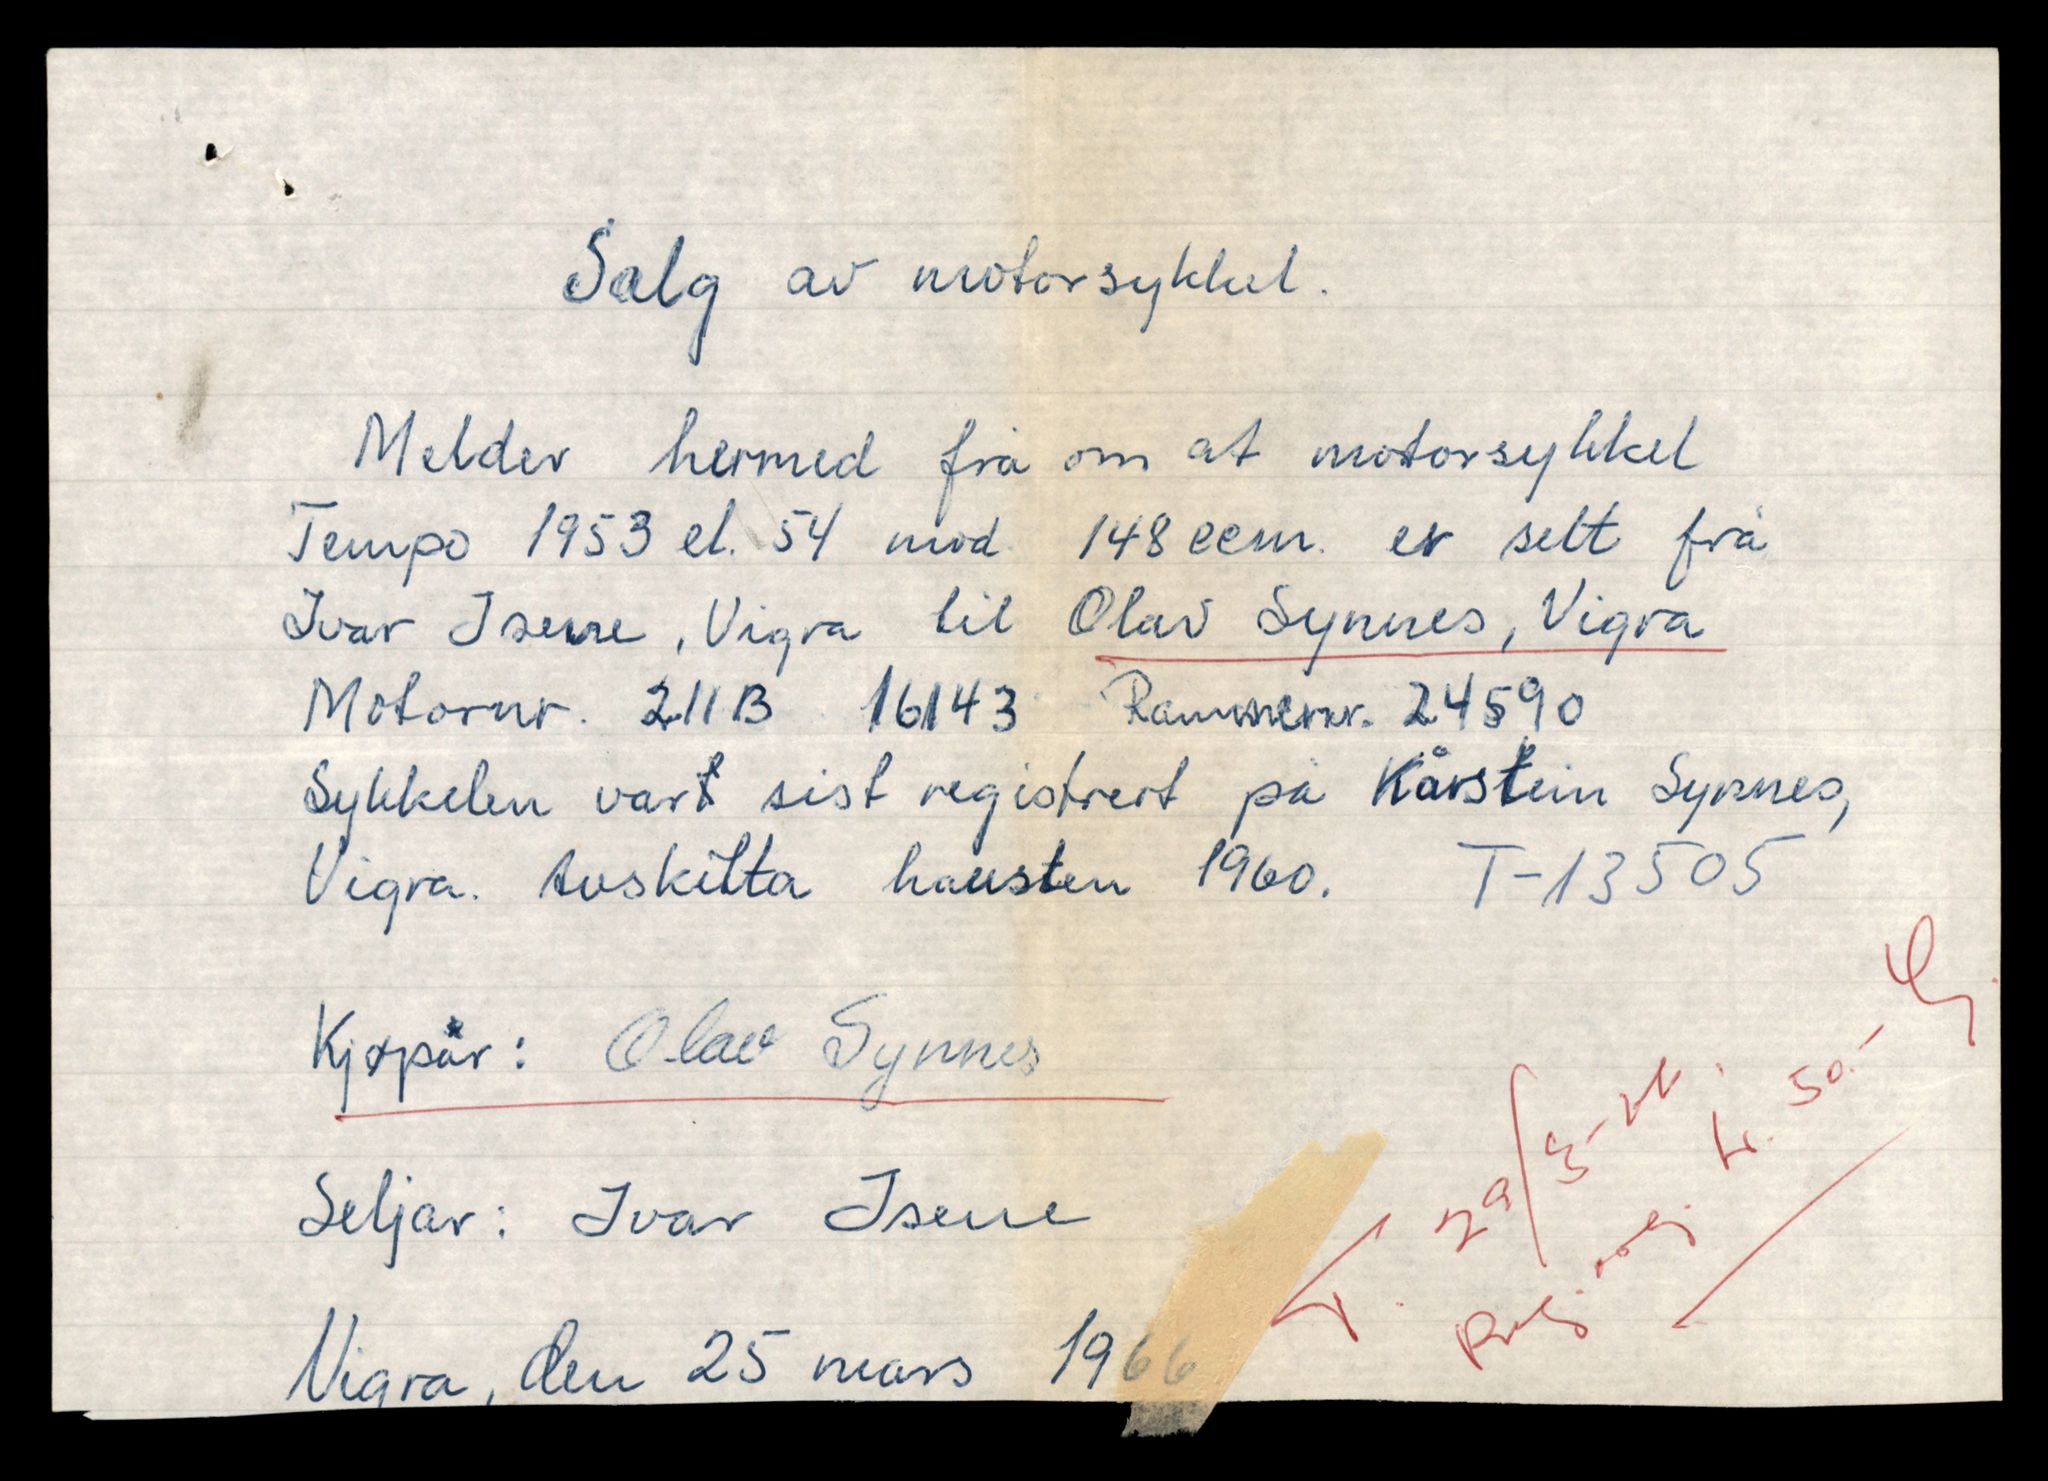 Salg av motorsykkel.
Melder hermed frå om at motorsykkel
Tempo 1953 el. 54 mod. 148 ccm. er selt frå
Ivar Isene, Vigra til Olav Synnes, Vigra
Motornr. 211B 16143 Rammenr. 24590
Sykkelen vart sist registrert på Kårstein Synnes,
Vigra. Avskilta hausten 1960. T-13505
Kjøpar: Olav Synnes
Seljar: Ivar Isene
Vigra, den 25 mars 1966
29/3-66.
kr. 50.-